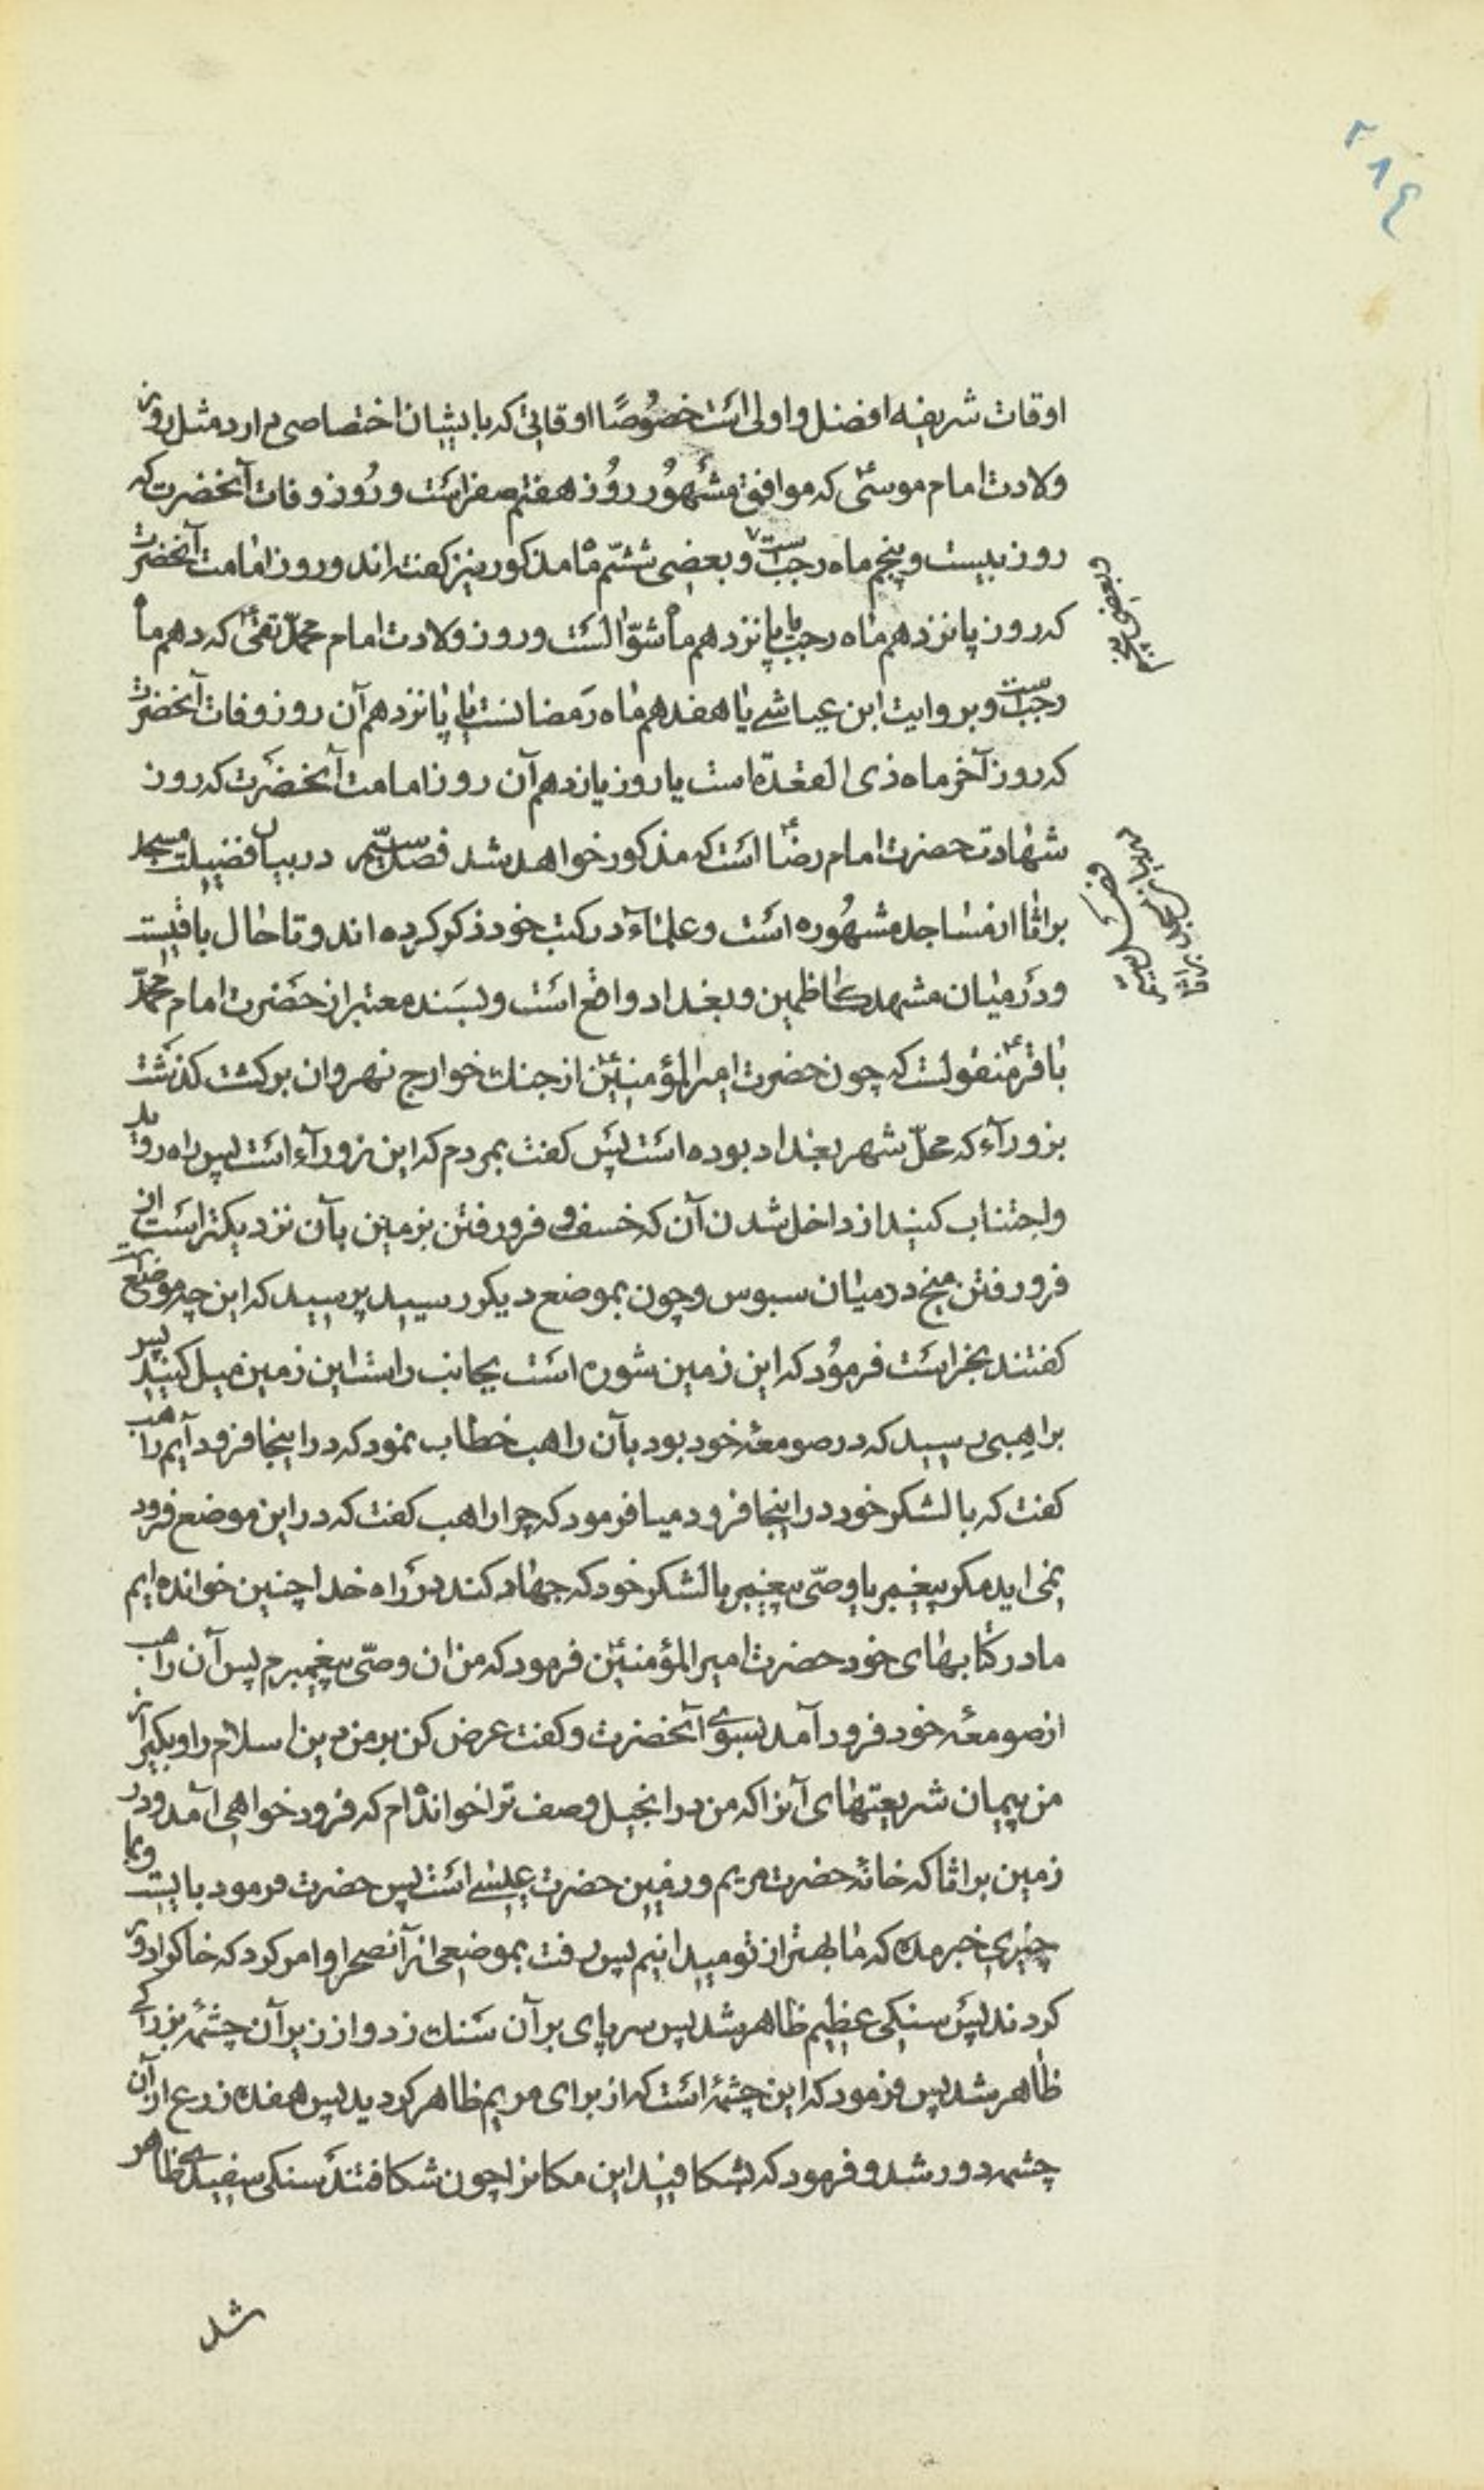 ۲۱۴
اوقات شریفه افضل و اولی است خصوصًا اوقاتی که بایشان اختصاصی دارد مثل روز
ولادت امام موسیؑ که موافق مشهور روز هفتم صفر است و روز وفات آنحضرت که
روز بیست و پنجم ماه رجبست و بعضی ششم ماه مذکور نیز گفته اند و روز امامت آنحضرت
که روز پانزدهم ماه رجب یا پانزدهم ماه شوّالست و روز ولادت امام محمّد تقیؑ که دهم ماه
رجبست و بروایت ابن عیاشی یا هفدهم ماه رمضانست یا پانزدهم آن روز وفات آنحضرت
که روز آخر ماه ذی القعدّه است یا روز یازدهم آن روز امامت آنحضرت که روز
شهادت حضرت امام رضاؑ است که مذکور خواهد شد فصل بیستم در بیان فضیلت مسجد
براثا از مساجد مشهوره است و علمآء در کتب خود ذکر کرده اند و تا حال باقیست
و در میان مشهد کاظمین و بغداد واقع است و بسند معتبر از حضرت امام محمّد
باقرؑ منقولست که چون حضرت امیر المؤمنینؑ از جنک خوارج نهروان برکشت کذشت
بزورآء که محلّ شهر بغداد بوده است پس کفت بمردم که این زورآء است پس راه روید
و اجتناب کنید از داخل شدن آن که خسف و فرو رفتن بزمین بآن نزدیکتر است از
فرو رفتن میخ در میان سبوس و چون بموضع دیکر رسید پرسید که این چه موضع است
کفتند بحراست فرمود که این زمین شوره است بجانب راست این زمین میل کنید پس
براهبی رسید که در صومعهٔ خود بود بآن راهب خطاب نمود که در اینجا فرود آیم راهب
کفت که با لشکر خود در اینجا فرود میا فرمود که چرا راهب کفت که در این موضع فرود
نمی اید مکر پیغمبر یا وصّی پیغمبر با لشکر خود که جهاد کند در راه خدا چنین خوانده ایم
ما در کتابهای خود حضرت امیر المؤمنینؑ فرمود که من ان وصّی پیغمبرم پس آن راهب
از صومعهٔ خود فرود آمد بسوی آنحضرت و کفت عرض کن بر من دین اسلام را و بکیر از
من پیمان شریعتهای آنرا که من در انجیل وصف ترا خوانده‌ام که فرود خواهی آمد در
زمین براثا که خانهٔ حضرت مریم و زمین حضرت عیسی است پس حضرت فرمود بایست و ما را
چیزی خبر مده که ما بهتر از تو میدانیم پس رفت بموضعی از آنصحرا و امر کرد که خاکرا دور
کردند پس سنکی عظیم ظاهر شد پس سر پای بر آن سنک زد و از زیر آن چشمهٔ بزرکی
ظاهر شد پس فرمود که این چشمهٔ است که از برای مریم ظاهر کردید پس هفده ذرع از آن
چشمه دور شد و فرمود که بشکافید این مکانرا چون شکافتند سنکی سفیدی ظاهر
شد
و بعضی پنجم
فصل بیستم
در بیان مسجد براثا